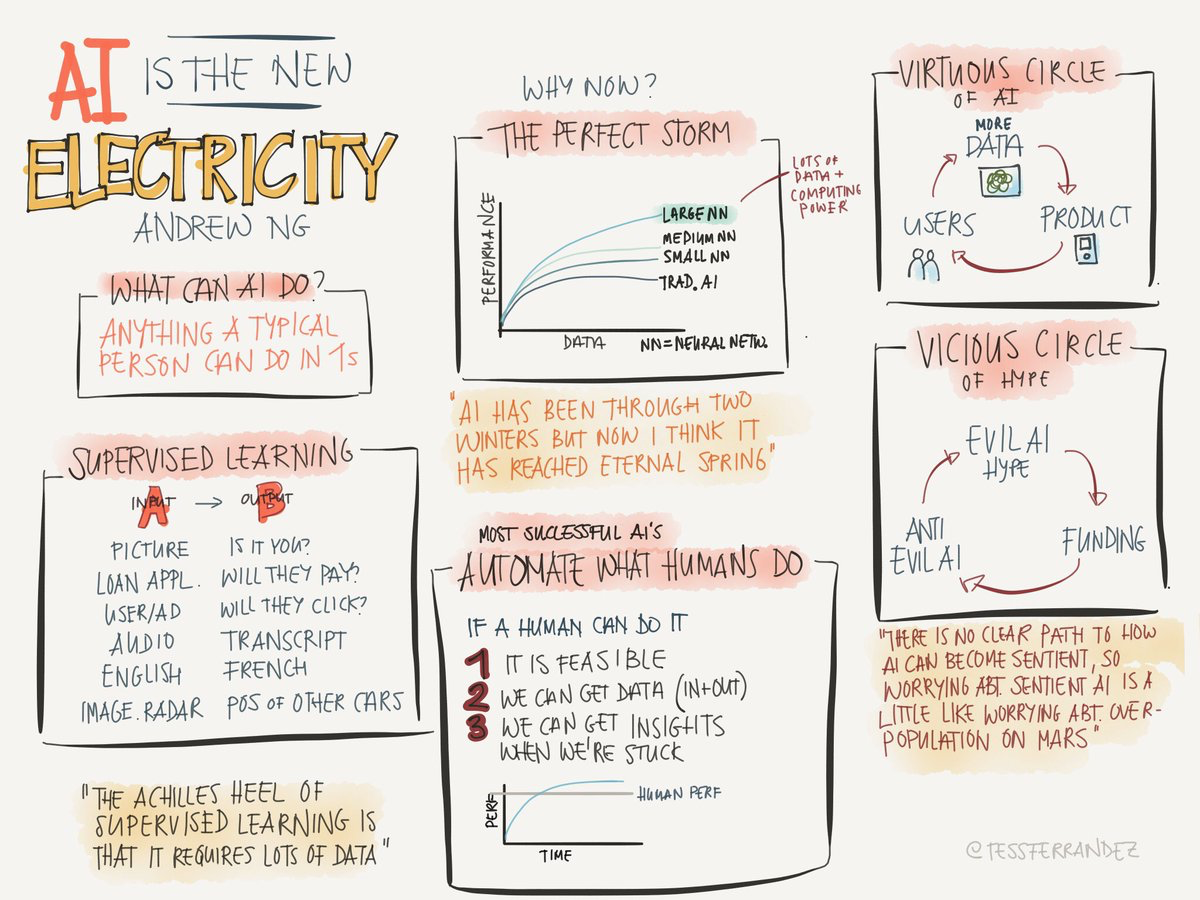 AI IS THE NEW
ELECTRICITY
ANDREW NG
WHAT CAN AI DO?
ANYTHING A TYPICAL
PERSON CAN DO IN 1s
SUPERVISED LEARNING
INPUT → OUTPUT
A B
PICTURE IS IT YOU?
LOAN APPL. WILL THEY PAY?
USER/AD WILL THEY CLICK?
AUDIO TRANSCRIPT
ENGLISH FRENCH
IMAGE.RADAR POS OF OTHER CARS
"THE ACHILLES HEEL OF
SUPERVISED LEARNING IS
THAT IT REQUIRES LOTS OF DATA"
WHY NOW?
THE PERFECT STORM
LOTS OF
DATA +
COMPUTING
POWER
PERFORMANCE
LARGE NN
MEDIUM NN
SMALL NN
TRAD. AI
DATA
NN=NEURAL NETW.
"AI HAS BEEN THROUGH TWO
WINTERS BUT NOW I THINK IT
HAS REACHED ETERNAL SPRING"
MOST SUCCESSFUL AI'S
AUTOMATE WHAT HUMANS DO
IF A HUMAN CAN DO IT
1 IT IS FEASIBLE
2 WE CAN GET DATA (IN+OUT)
3 WE CAN GET INSIGHTS
WHEN WE'RE STUCK
PERF
HUMAN PERF
TIME
VIRTUOUS CIRCLE
OF AI
MORE
DATA
USERS
PRODUCT
VICIOUS CIRCLE
OF HYPE
EVIL AI
HYPE
ANTI
EVIL AI
FUNDING
"THERE IS NO CLEAR PATH TO HOW
AI CAN BECOME SENTIENT, SO
WORRYING ABT. SENTIENT AI IS A
LITTLE LIKE WORRYING ABT. OVER-
POPULATION ON MARS"
@TESSFERRANDEZ